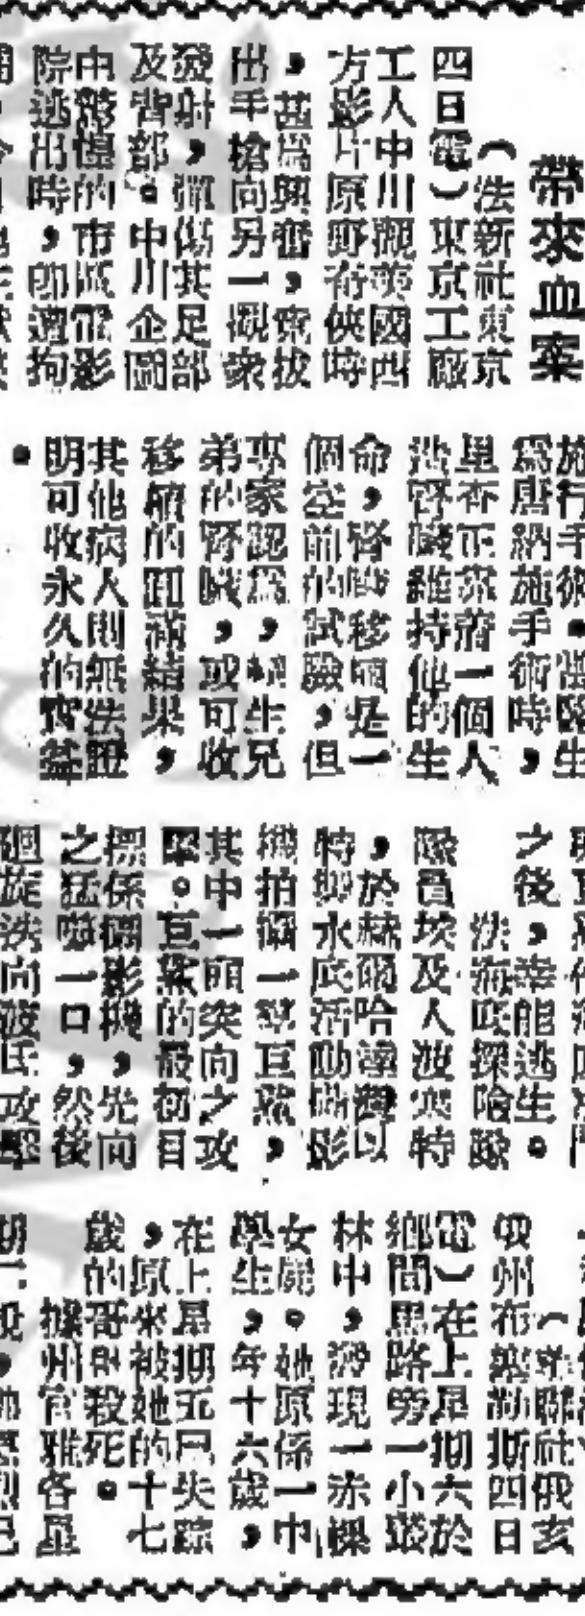 帶來血案
(法新社東京
四日電)東京工廠
工人中川觀英國西
方影片原野奇俠時
,甚爲興奮,突拔
出手槍向另一觀衆
發射,彈傷其足部
及背部。中川企圖
中驚惶的市區電影
院逃出時,卽遭拘
爲唐納施手術時,
里查正靠着一個人
造腎臟維持他的生
命,腎臟移植是一
個空前的試驗,但
專家認爲,孿生兄
弟的腎臟,或可收
移植的圓滿結果,
其他病人則無法證
明可收永久的實益
。
之後,幸能逃生。
法海底探險隊
隊員埃及人波寒特
,於赫爾哈達灣以
特別水底活動攝影
機拍攝一羣巨鯊,
其中一頭突向之攻
擊。巨鯊的最初目
標係攝影機,先向
之猛噬一口,然後
迴旋泆向波氏攻擊
(聯社俄亥
俄州布勒斯四日
電)在上星期六於
鄉間黑路旁一小叢
林中,發現一赤裸
女屍。她原係一中
學生,年十六歲,
在上星期五已失踪
,原來被她的十七
歲的哥哥殺死。
據州官雅各星